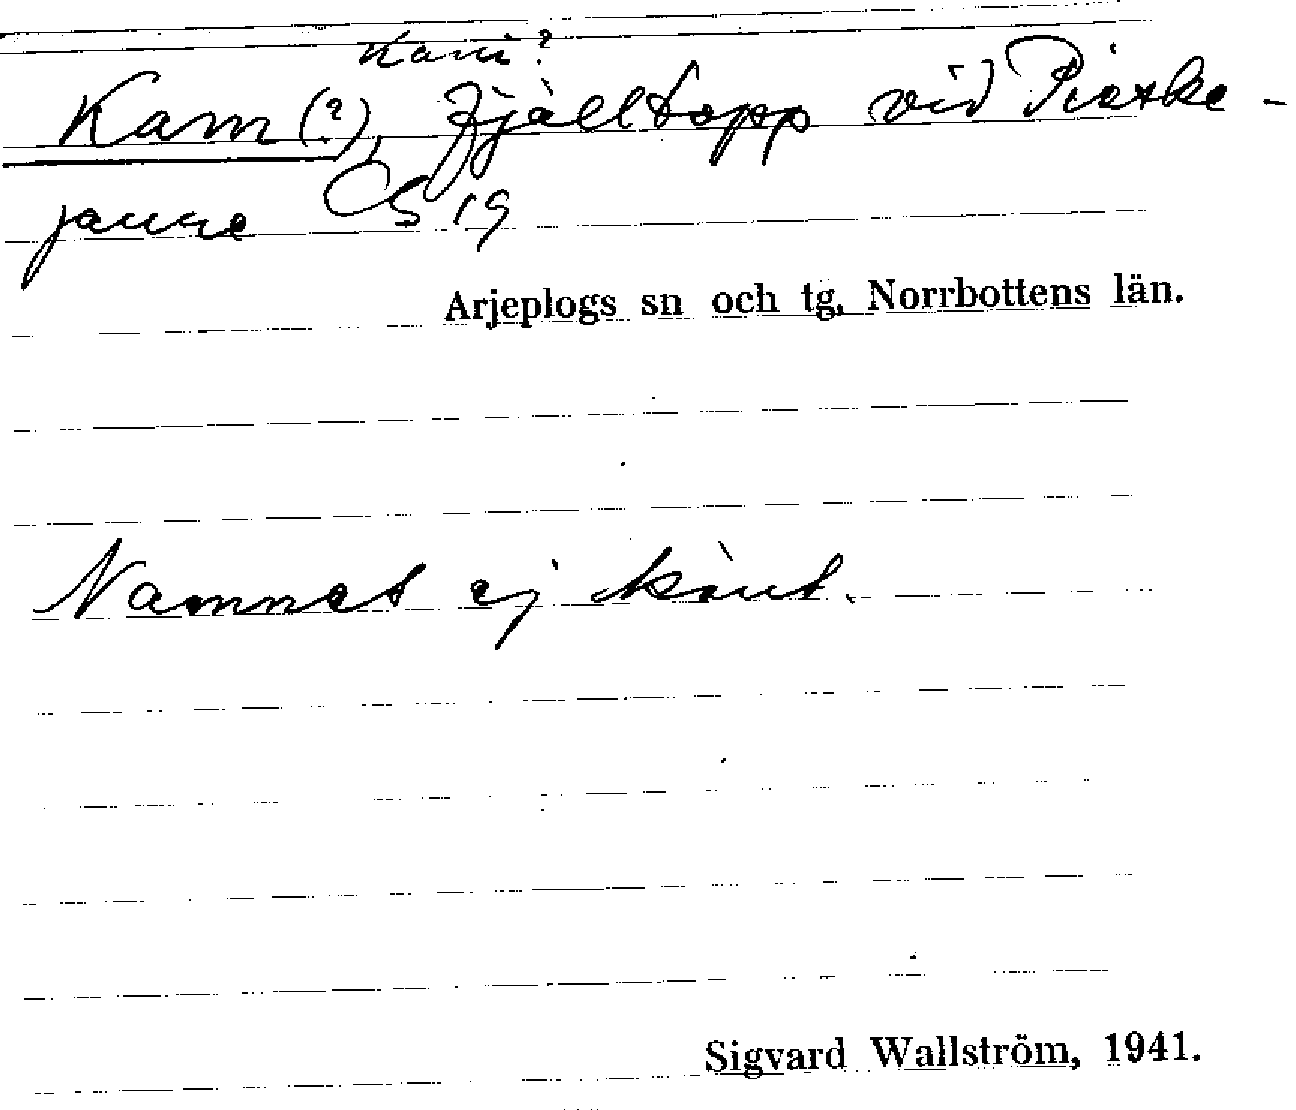 Kani?
Kam (?), fjälltopp vid Pieske-
jaure CS 19
Arjeplogs sn och tg, Norrbottens län.
Namnet ej känt.
Sigvard Wallström, 1941.